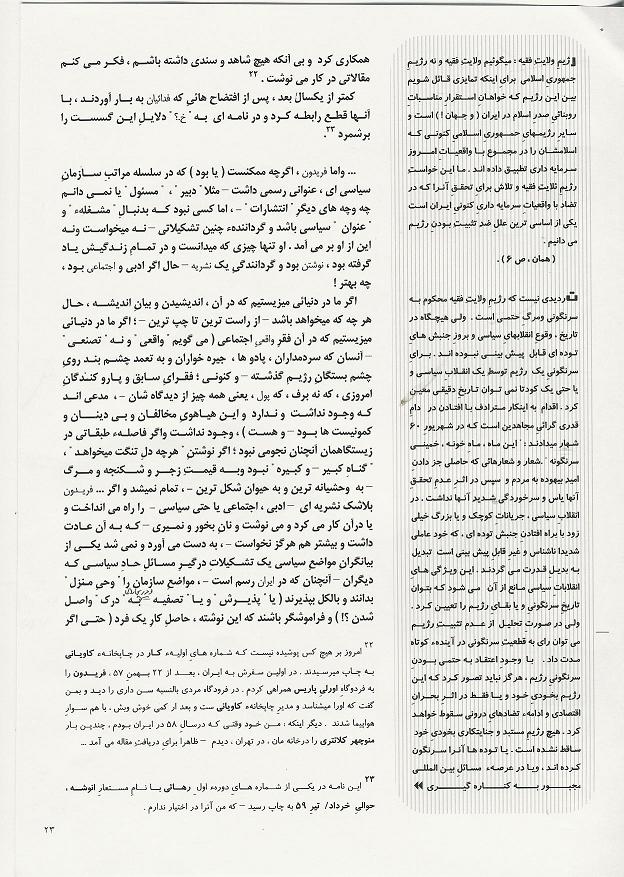 همکاری کرد و بی آنکه هیچ شاهد و سندی داشته باشم ، فکر می کنم
مقالاتی در کار می نوشت . ۲۲
کمتر از یکسال بعد ، پس از افتضاح هائی که فدائیان به بار آوردند ، با
آنها قطع رابطه کرد و در نامه ای به "خ.؟" دلایلِ این گسست را
برشمرد ۲۳.
... واما فریدون ، اگرچه ممکنست ( یا بود ) که در سلسله مراتبِ سازمانِ
سیاسی ای ، عنوانی رسمی داشت – مثلا" دبیر" ، "مسئول" یا نمی دانم
چه وچه های دیگرِ "انتشارات" –، اما کسی نبود که بدنبالِ "مشغلهء" و
"عنوان" سیاسی باشد و گردانندهء چنین تشکیلاتی – نه میخواست ونه
این از او بر می آمد . او تنها چیزی که میدانست و در تمام زندگیش یاد
گرفته بود ، نوشتن بود و گردانندگیِ یک نشریه – حال اگر ادبی و اجتماعی بود ،
چه بهتر !
اگر ما در دنیائی میزیستیم که در آن ، اندیشیدن و بیانِ اندیشه ، حال
هر چه که میخواهد باشد – از راست ترین تا چپ ترین – ؛ اگر ما در دنیائی
میزیستیم که در آن فقرِ واقعیِ اجتماعی ( می گویم "واقعی" و نه "تصنعی"
– آنسان که سردمداران ، پادو ها ، جیره خواران و به تعمد چشم بند رویِ
چشم بستگانِ رژیم گذشته – و کنونی ؛ فقرای سابق و پارو کنندگانِ
امروزی ، که نه برف ، که پول ، یعنی همه چیز از دیدگاه شان – ، مدعی اند
که وجود نداشت و ندارد و این هیاهویِ مخالفان و بی دینان و
کمونیست ها بود – و هست ) ، وجود نداشت واگر فاصلهء طبقاتی در
زیستگاهمان آنچنان نجومی نبود ؛ اگر نوشتنِ "هرچه دلِ تنگت میخواهد" ،
"گناهِ کبیر – و کبیره" نبود وبه قیمتِ زجر و شکنجه و مرگ
– به وحشیانه ترین و به حیوان شکل ترین – ، تمام نمیشد و اگر ... فریدون
بلاشک نشریه ای – ادبی ، اجتماعی یا حتی سیاسی – را راه می انداخت و
یا درآن کار می کرد و می نوشت و نان بخور و نمیری – که به آن عادت
داشت و بیشتر هم هرگز نخواست – ، به دست می آورد و نمی شد یکی از
بیانگرانِ مواضعِ سیاسیِ یک تشکیلاتِ درگیرِ مسائلِ حادِ سیاسی که
دیگران – آنچنان که در ایران رسم است – ، مواضعِ سازمان را "وحیِ منزل"
بدانند و بالکل بپذیرند ( یا "پذیرش" و یا "تصفیه" درک واصل
شدن ؟! ) و فراموشگر باشند که این نوشته ، حاصلِ کارِ یک فرد ( حتی اگر
۲۲
امروز بر هیچ کس پوشیده نیست که شماره هایِ اولیهء کار در چاپخانهء کاویانی
به چاپ میرسیدند . در اولین سفرش به ایران ، بعد از ۲۲ بهمن ۵۷ ، فریدون را
به فرودگاهِ اورلیِ پاریس همراهی کردم . در فرودگاه مردی بالنسبه سن داری را دید و بمن
گفت که اورا میشناسد و مدیرِ چاپخانهء کاویانی ست و بعد از کمی خوش وبش ، با هم سوارِ
هواپیما شدند . دیگر اینکه : من خود وقتی که درسال ۵۸ در ایران بودم ، چندین بار
منوچهر کلانتری را درخانه مان ، در تهران ، دیدم – ظاهرا" برایِ دریافتِ مقاله می آمد ...
۲۳
این نامه در یکی از شماره هایِ دورهء اولِ رهائی با نامِ مستعارِ آنوشه ،
حوالیِ خرداد/ تیرِ ۵۹ به چاپ رسید – که من آنرا در اختیار ندارم .
رژیم ولایتِ فقیه : میگوئیم ولایتِ فقیه و نه رژیمِ
جمهوریِ اسلامی برایِ اینکه تمایزی قائل شویم
بین این رژیم که خواهانِ استقرارِ مناسباتِ
روبنائیِ صدرِ اسلام در ایران ( و جهان ! ) است و
سایرِ رژیمهایِ جمهوریِ اسلامیِ کنونی که
اسلامشان را در مجموع با واقعیاتِ امروزِ
سرمایه داری تطبیق داده اند . ما این خواستِ
رژیمِ ولایت فقیه و تلاش برای تحققِ آنرا که در
تضاد با واقعیاتِ سرمایه داریِ کنونیِ ایران است
یکی از اساسی ترین عللِ ضدِ تثبیت بودنِ رژیم
می دانیم .
( همان ، ص ۶ ) .
تردیدی نیست که رژیمِ ولایتِ فقیه محکوم به
سرنگونی ومرگِ حتمی است . ولی هیچگاه در
تاریخ ، وقوعِ انقلابهایِ سیاسی و بروزِ جنبش هایِ
توده ای قابلِ پیش بینی نبوده اند . برایِ
سرنگونیِ یک رژیم توسطِ یک انقلابِ سیاسی و
یا حتی یک کودتا نمی توان تاریخِ دقیقی معین
کرد . اقدام به اینکار مترادف با افتادن در دامِ
قدری گرائیِ مجاهدین است که در شهریور ۶۰
شعار میدادند : "این ماه ، ماهِ خونه ، خمینی
سرنگونه" . شعار و شعارهائی که حاصلی جز دادنِ
امیدِ بیهوده به مردم و سپس در اثرِ عدمِ تحققِ
آنها یاس و سرخوردگیِ شدیدِ آنها نداشت . در
انقلابِ سیاسی ، جریاناتِ کوچک و یا بزرگ خیلی
زود با براه افتادنِ جنبشِ توده ای ، که خود عاملی
شدیدا ناشناس و غیرِ قابلِ پیش بینی است تبدیل
به بدیلِ قدرت می گردند . این ویژگی هایِ
انقلاباتِ سیاسی مانع از آن می شود که بتوان
تاریخِ سرنگونی و یا بقایِ رژیم را تعیین کرد .
ولی در صورتِ تحلیل از عدمِ تثبیتِ رژیم
می توان رای به قطعیتِ سرنگونی در آیندهء کوتاه
مدت داد . با وجودِ اعتقاد به حتمی بودنِ
سرنگونیِ رژیم ، هرگز نباید تصور کرد که این
رژیم بخودیِ خود و یا فقط در اثرِ بحرانِ
اقتصادی و ادامهء تضادهایِ درونی سقوط خواهد
کرد . هیچ رژیمِ مستبد و جنایتکاری بخودیِ خود
ساقط نشده است . یا توده ها آنرا سرنگون
کرده اند ، ویا در عرصهء مسائلِ بین المللی
مجبور به کناره گیری
۲۳